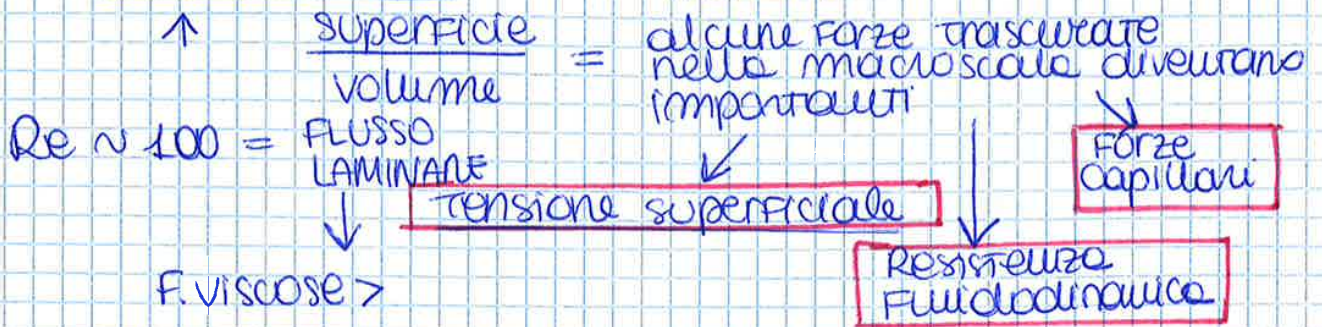 ↑ superficie / volume = alcune forze trascurate
nella macroscala diventano
importanti
Re ~ 100 = FLUSSO
LAMINARE
Tensione superficiale
Forze
Capillari
F. Viscose >
Resistenza
Fluidodinamica